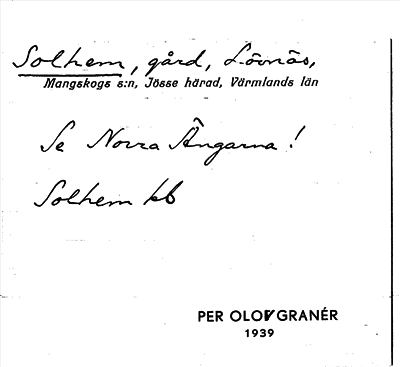 Solhem, gård, Lövnäs,
Mangskogs s:n, Jösse härad, Värmlands län
Se Norra Ängarna!
Solhem kb
PER OLOF GRANÉR
1939